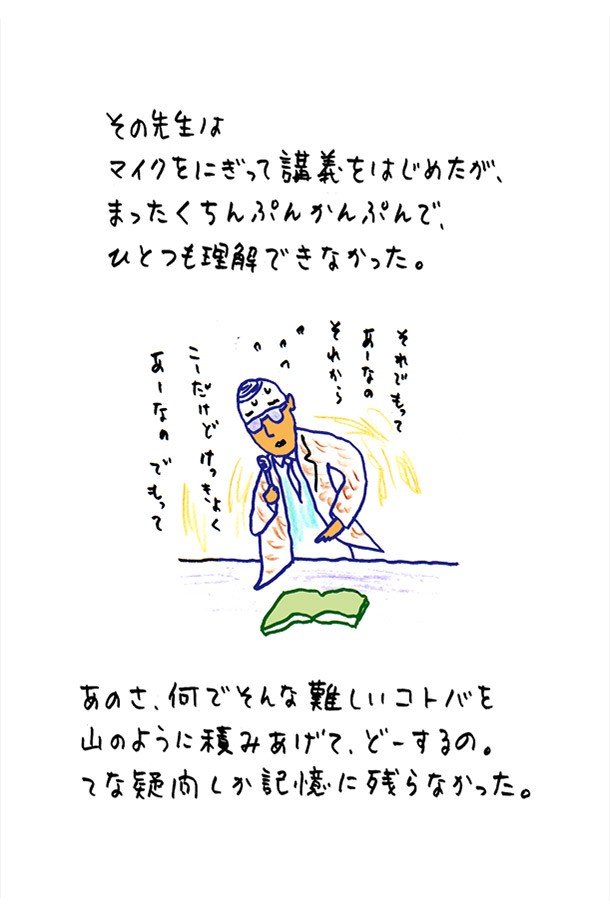 その先生は
マイクをにぎって講義をはじめたが、
まったくちんぷんかんぷんで、
ひとつも理解できなかった。
それでもって
あーなの
それから
こーだけどけっきょく
あーなの でもって
あのさ、何でそんな難しいコトバを
山のように積みあげて、どーするの。
てな疑問しか記憶に残らなかった。